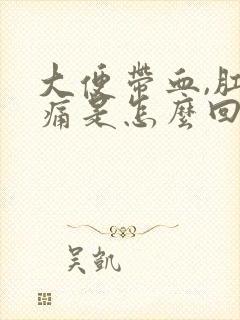 大便帶血,肛
痛是怎麼回
吴凱